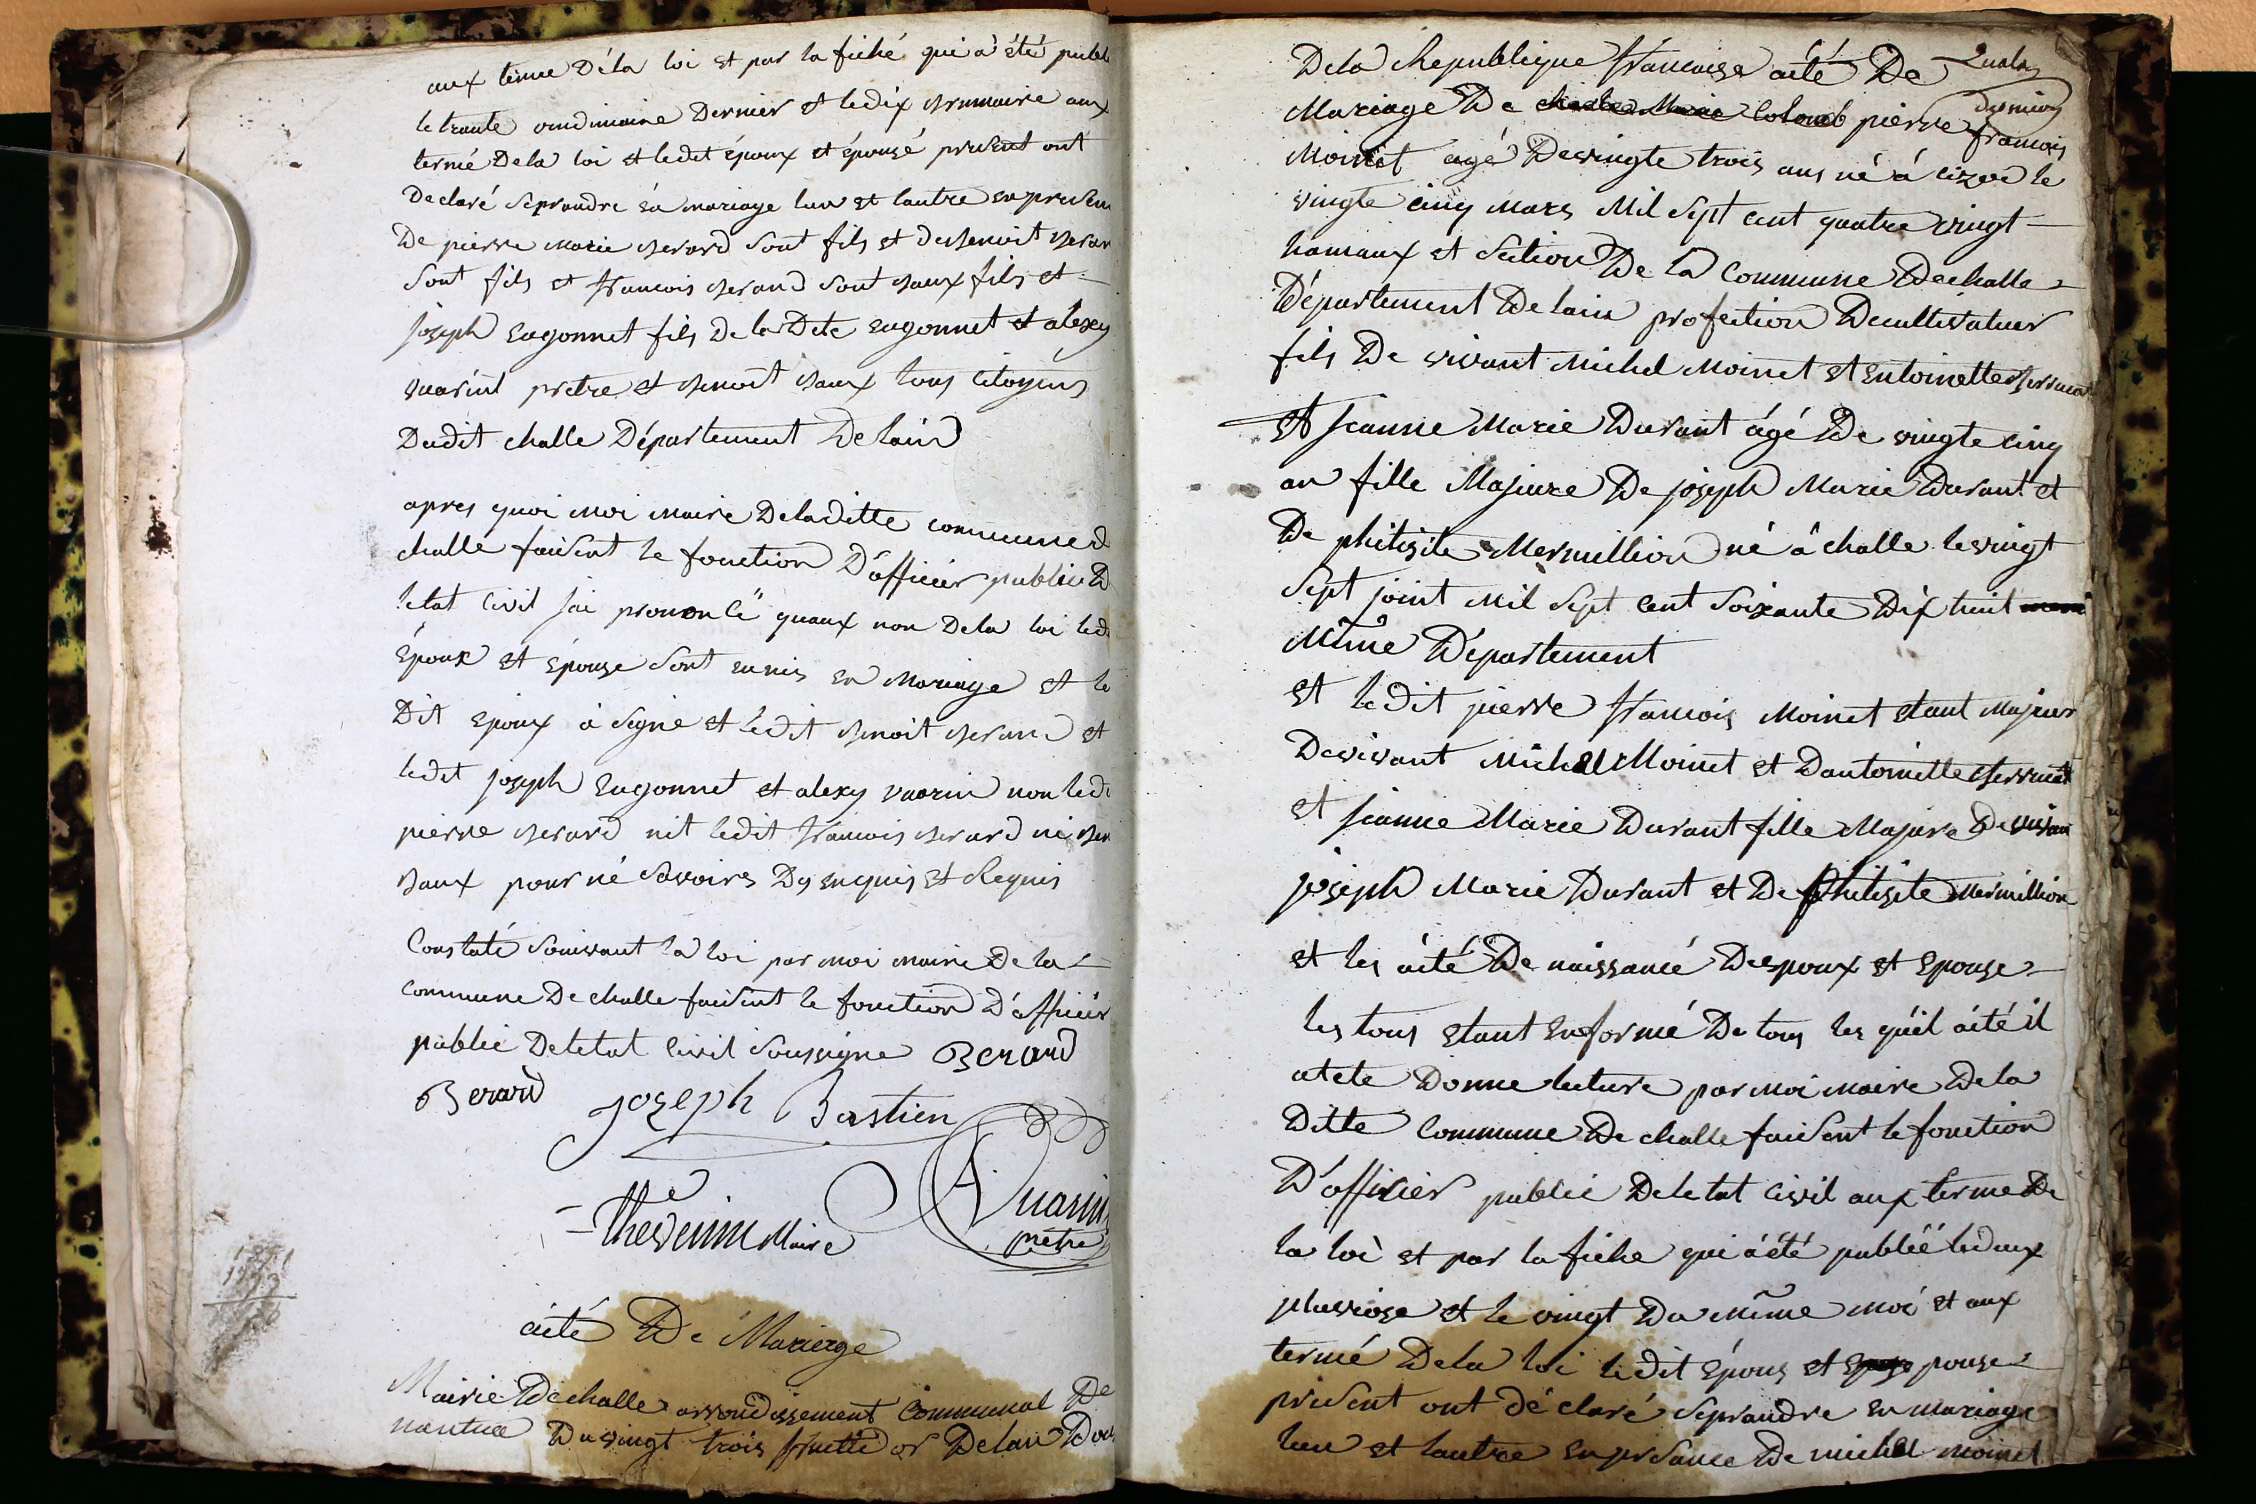 aux terme Déla loi et par la fiché qui a été publ
le trante vindimiaire Dernier et le dix brumaire aux
termé De la loi et ledit époux et épousé présent ont
Declaré seprandre en mariage lun et lautre en presen
De pierre marie berard sont fils et de benoit berar
sont fils et francois berard sont baux fils et
joseph eugonnet fils De la Dite eugonnet et alexy
vuarint pretre et benoit baux tous citoyens
Dudit challe Département De lain
apres quoi moi maire De la ditte commune d
challe faisent le fonction D'officier public D
letat civil jai prononcé quaux non De la loi led
époux et épouse sont eunis en Mariage et le
Dit epoux à signe et ledit benoit berard et
ledit joseph eugonnet et alexy vuarin non led
pierre berard nit ledit francois berard ni ben
baux pour né savoires Dy enquis et Requis
Constaté souivant la loi par moi maire De la
commune De challe faisent le fonction D'officier
public De letat civil soussigne Berard
Berard Joseph Bastien
A Vuarin
prêtre
Thevenin Maire
acté De Mariage
Mairie De challe arrondissement communal De
nantua Du vingt trois fructidor De lan Dou
De la Republique francaise acté De
Mariage De Colomb pierre francois
Moinet agé De vingte trois ans né á cizod le
vingte cinq mars Mil sept cent quatre vingt
hamaux et section De la commune De challe
Département De lain profection De cultivateur
fils De vivant Michel Moinet et entoinette
et Jeanne Marie Durant ágé De vingte cinq
an fille Majeure De joseph Marie Durant et
De philisite Mermillion né â challe le vingt
sept joint Mil sept cent soixante Dix huit
Même Département
et ledit pierre francois Moinet etant Majeur
De vivant Michel Moinet et Dantoinette
et jeanne Marie Durant fille Majure De vivan
joseph Marie Durant et De philisite Mermillion
et les acté De naissancé Depoux et Epouse
les tous etant enformé De tous les quil acté il
atete Donne lecture par moi maire De la
Ditte commune De challe faisent le fonction
D'officier public De letat civil aux terme De
la loi et par la fiche qui a été publiëé le deux
pluviose et le vingt Du même moi et aux
termé De la loi ledit Epous et pouse
présent ont déclaré seprandre en mariage
lun et lautre en présance De michel moinet